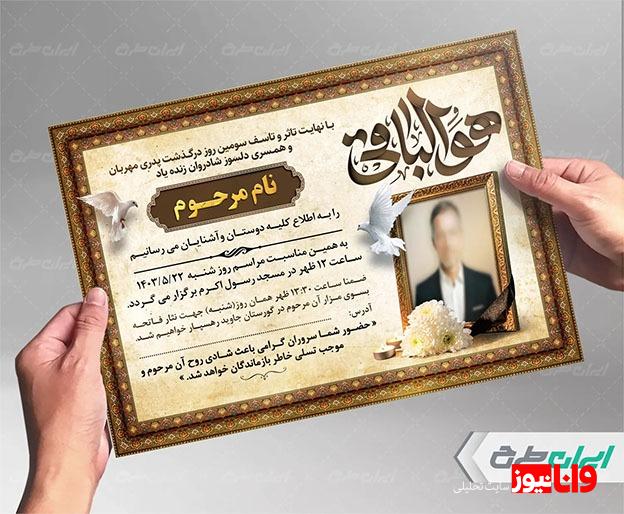 هوالباقی
با نهایت تاثر و تاسف سومین روز درگذشت پدری مهربان
و همسری دلسوز شادروان زنده یاد
نام مرحـوم
را به اطلاع کلیه دوستان و آشنایان می رسانیم
به همین مناسبت مراسم روز شنبه ۱۴۰۳/۵/۲۲
ساعت ۱۲ ظهر در مسجد رسول اکرم برگزار می گردد.
ضمنا ساعت ۱۳:۳۰ ظهر همان روز(شنبه) جهت نثار فاتحه
بسوی مزار آن مرحوم در گورستان جاوید رهسپار خواهیم شد.
آدرس:
« حضور شما سروران گرامی باعث شادی روح آن مرحوم و
موجب تسلی خاطر بازماندگان خواهد شد. »
ایران طرح
وانانیوز
سایت تحلیلی